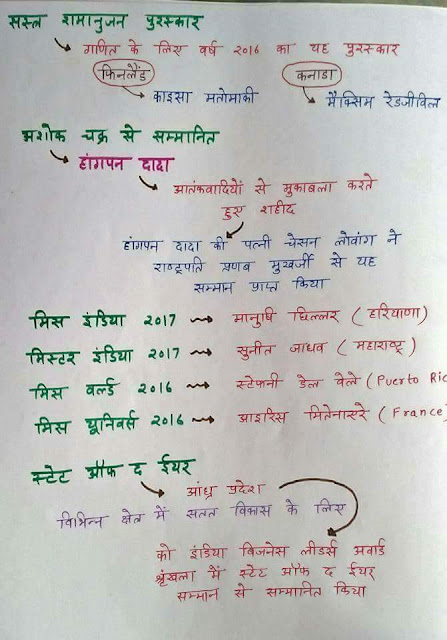 सस्त्र रामानुजन पुरस्कार
गणित के लिए वर्ष 2016 का यह पुरस्कार
फिनलैंड कनाडा
काइसा मतोमाकी मैक्सिम रेडजीविल
अशोक चक्र से सम्मानित
हांगपन दादा
आतंकवादियों से मुकाबला करते
हुए शहीद
हांगपन दादा की पत्नी चेसन लोवांग ने
राष्ट्रपति प्रणब मुखर्जी से यह
सम्मान प्राप्त किया
मिस इंडिया 2017 → मानुषि छिल्लर (हरियाणा)
मिस्टर इंडिया 2017 → सुनीत जाधव (महाराष्ट्र)
मिस वर्ल्ड 2016 → स्टेफनी डेल वेले (Puerto Ric
मिस यूनिवर्स 2016 → आइरिस मितेनासरे (France)
स्टेट ऑफ द ईयर
आंध्र प्रदेश
विभिन्न क्षेत्र में सतत विकास के लिए
को इंडिया बिजनेस लीडर्स अवार्ड
श्रृंखला में स्टेट ऑफ द ईयर
सम्मान से सम्मानित किया